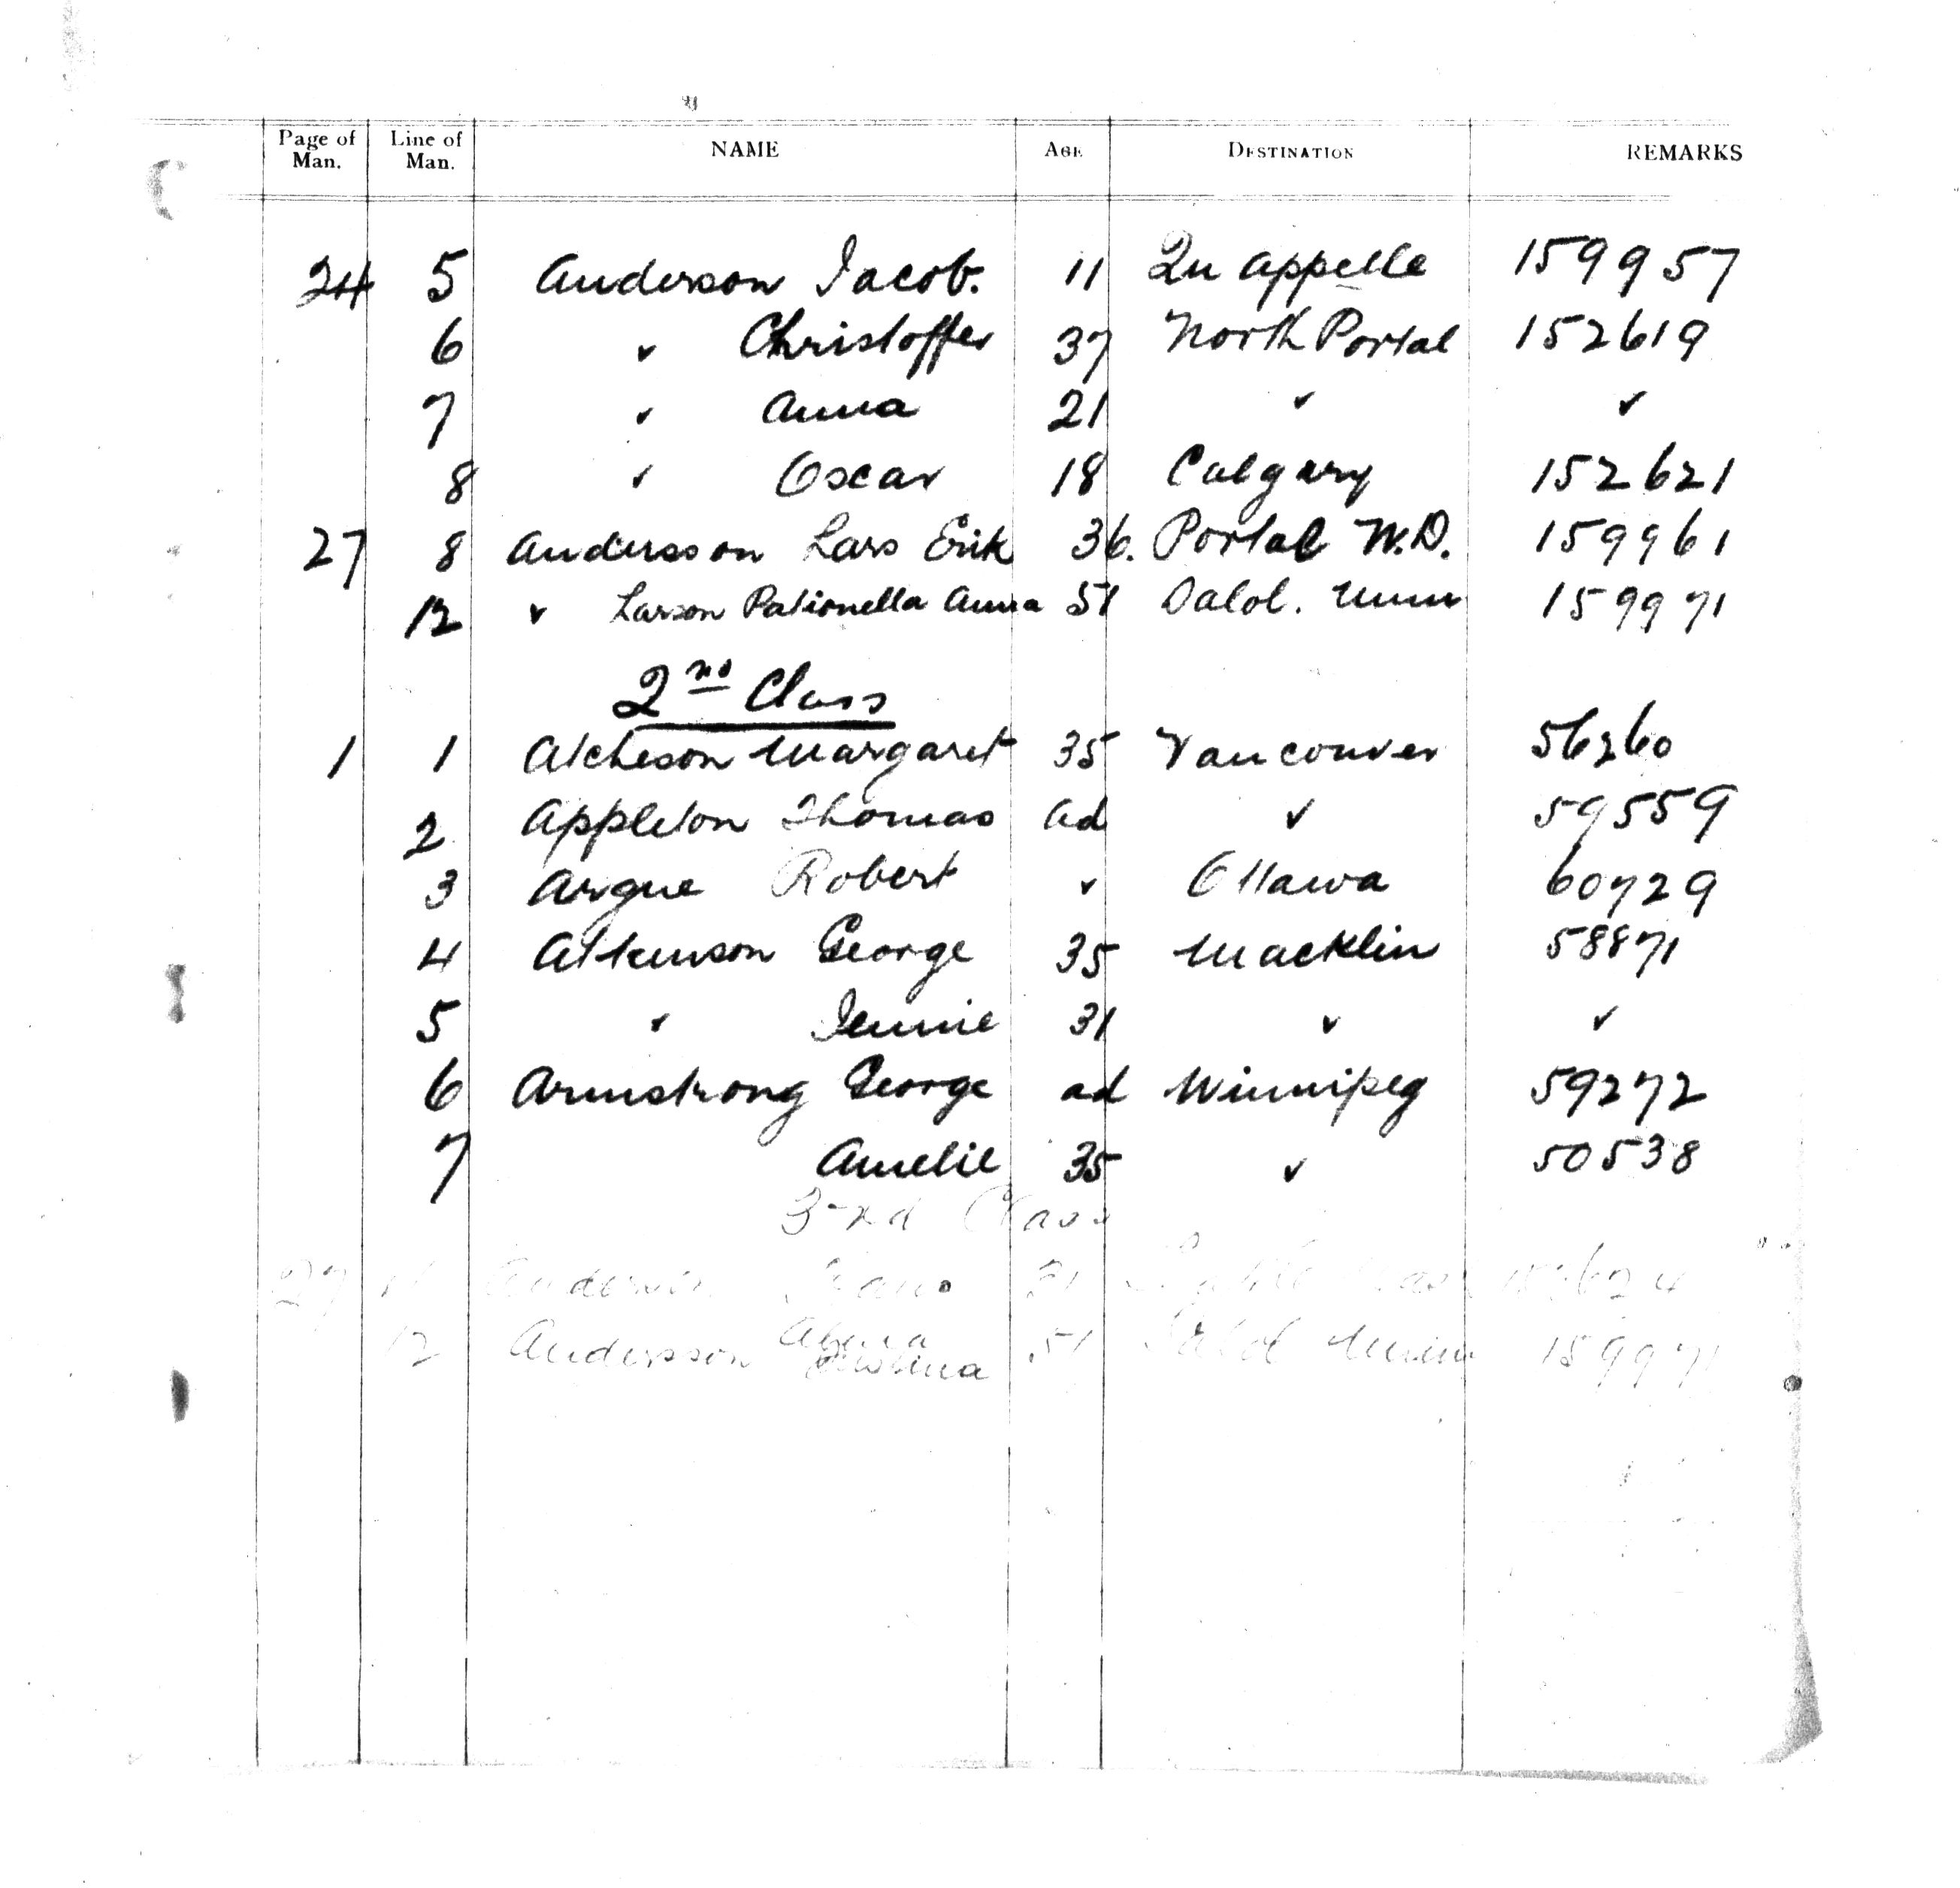 Page of Man. Line of Man. NAME AGE DESTINATION REMARKS
24 5 Anderson Jacob. 11 Qu Appelle 159957
6 " Christoffer 37 North Portal 152619
7 " Anna 21 " "
8 " Oscar 18 Calgary 152621
27 8 Andersson Lars Erik 36. Portal N.D. 159961
12 " Larson Anna 51 Minn 159971
2nd Class
1 1 Atcheson Margaret 35 Vancouver 56260
2 Appleton Thomas ad " 59559
3 Argue Robert " Ottawa 60729
4 Atkinson George 35 Macklin 58871
5 " Jennie 31 " "
6 Armstrong George ad Winnipeg 59272
7 Amelie 35 " 50538
3rd Class
27 Anderson
12 Andersson 51 Minn 159971